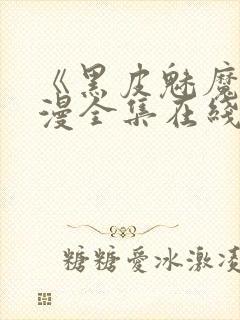 《黑皮魅魔
漫全集在线
糖糖爱冰激凌